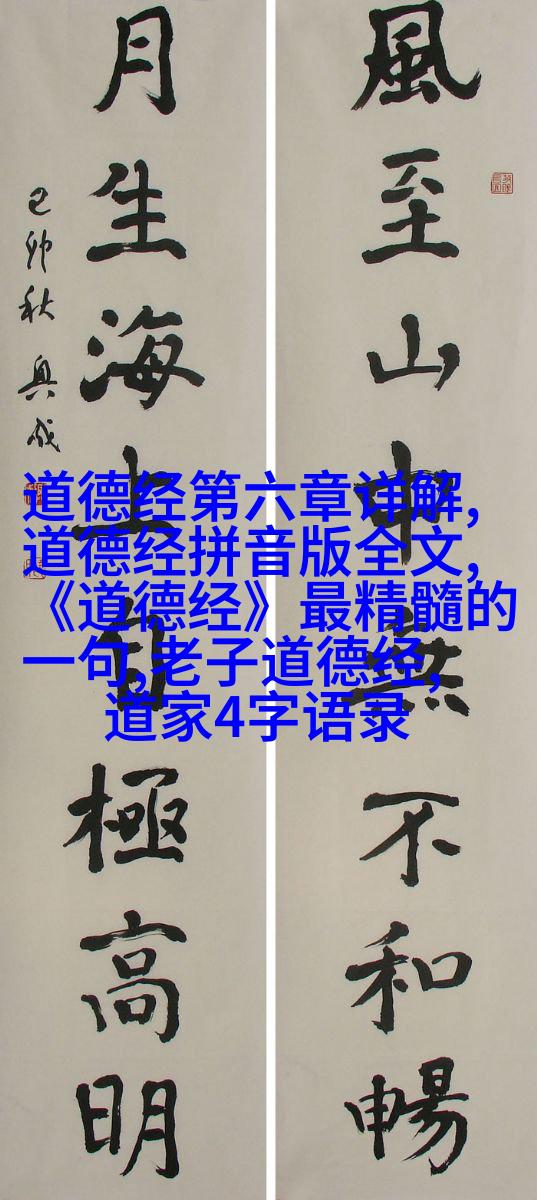 風至山中無不和暢
月生海上自極高明
己卯秋
道德经第六章详解,
道德经拼音版全文,
《道德经》最精髓的
一句,老子道德经,
道家4字语录